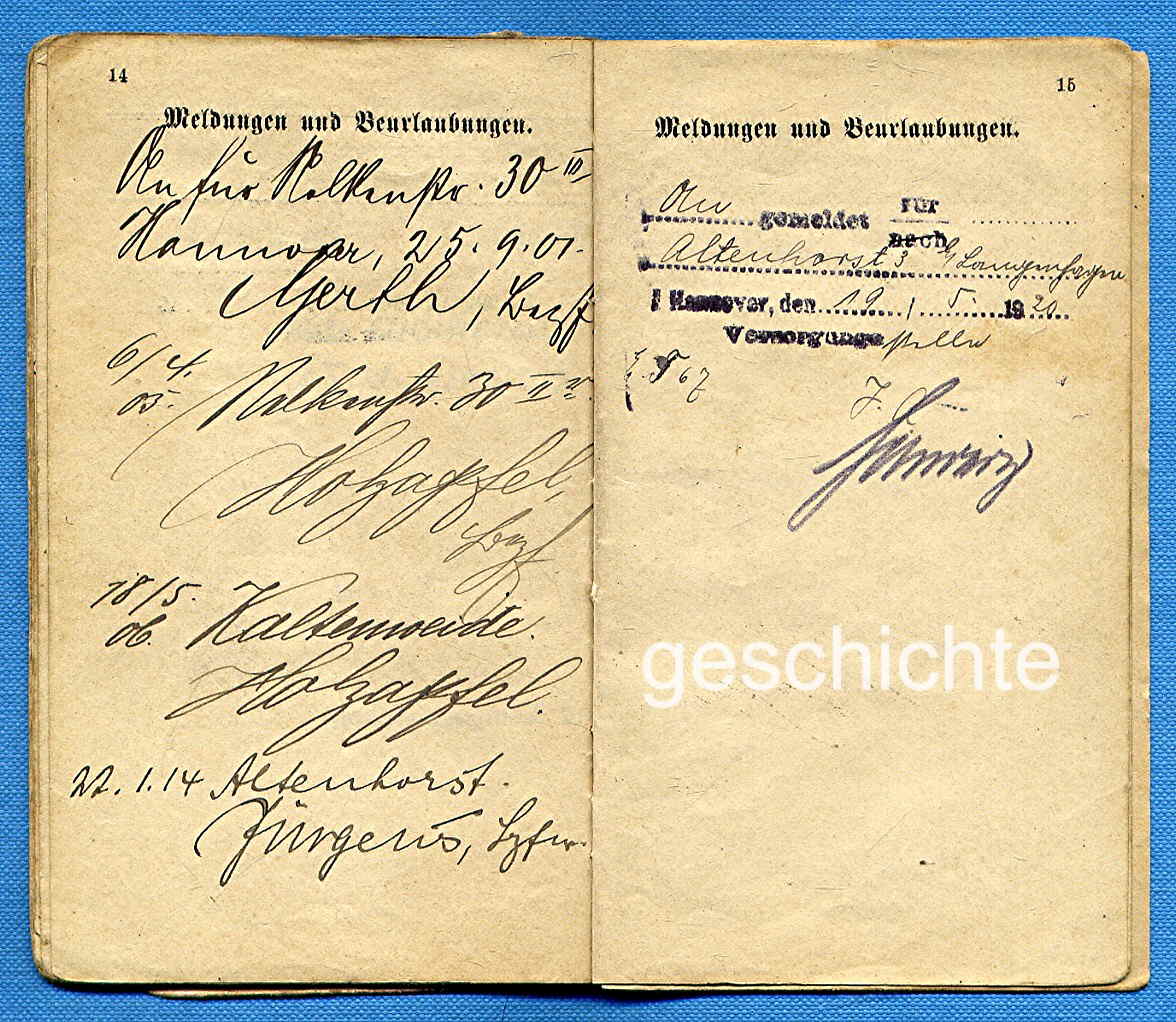 14
Meldungen und Beurlaubungen.
An für Nelkenstr. 30 III
Hannover, 25. 9. 01.
Gerth, Bezf
6/4.
05. Nelkenstr. 30 II
Holzapfel,
Bezf.
18/5.
06. Kaltenweide.
Holzapfel.
22. 1. 14 Altenhorst.
Jürgens, Bzfw.
15
Meldungen und Beurlaubungen.
An gemeldet für
nach
Altenhorst 3 b/Langenhagen
Hannover, den 19 / 5. 1920
Versorgungsstelle
J. A.
geschichte